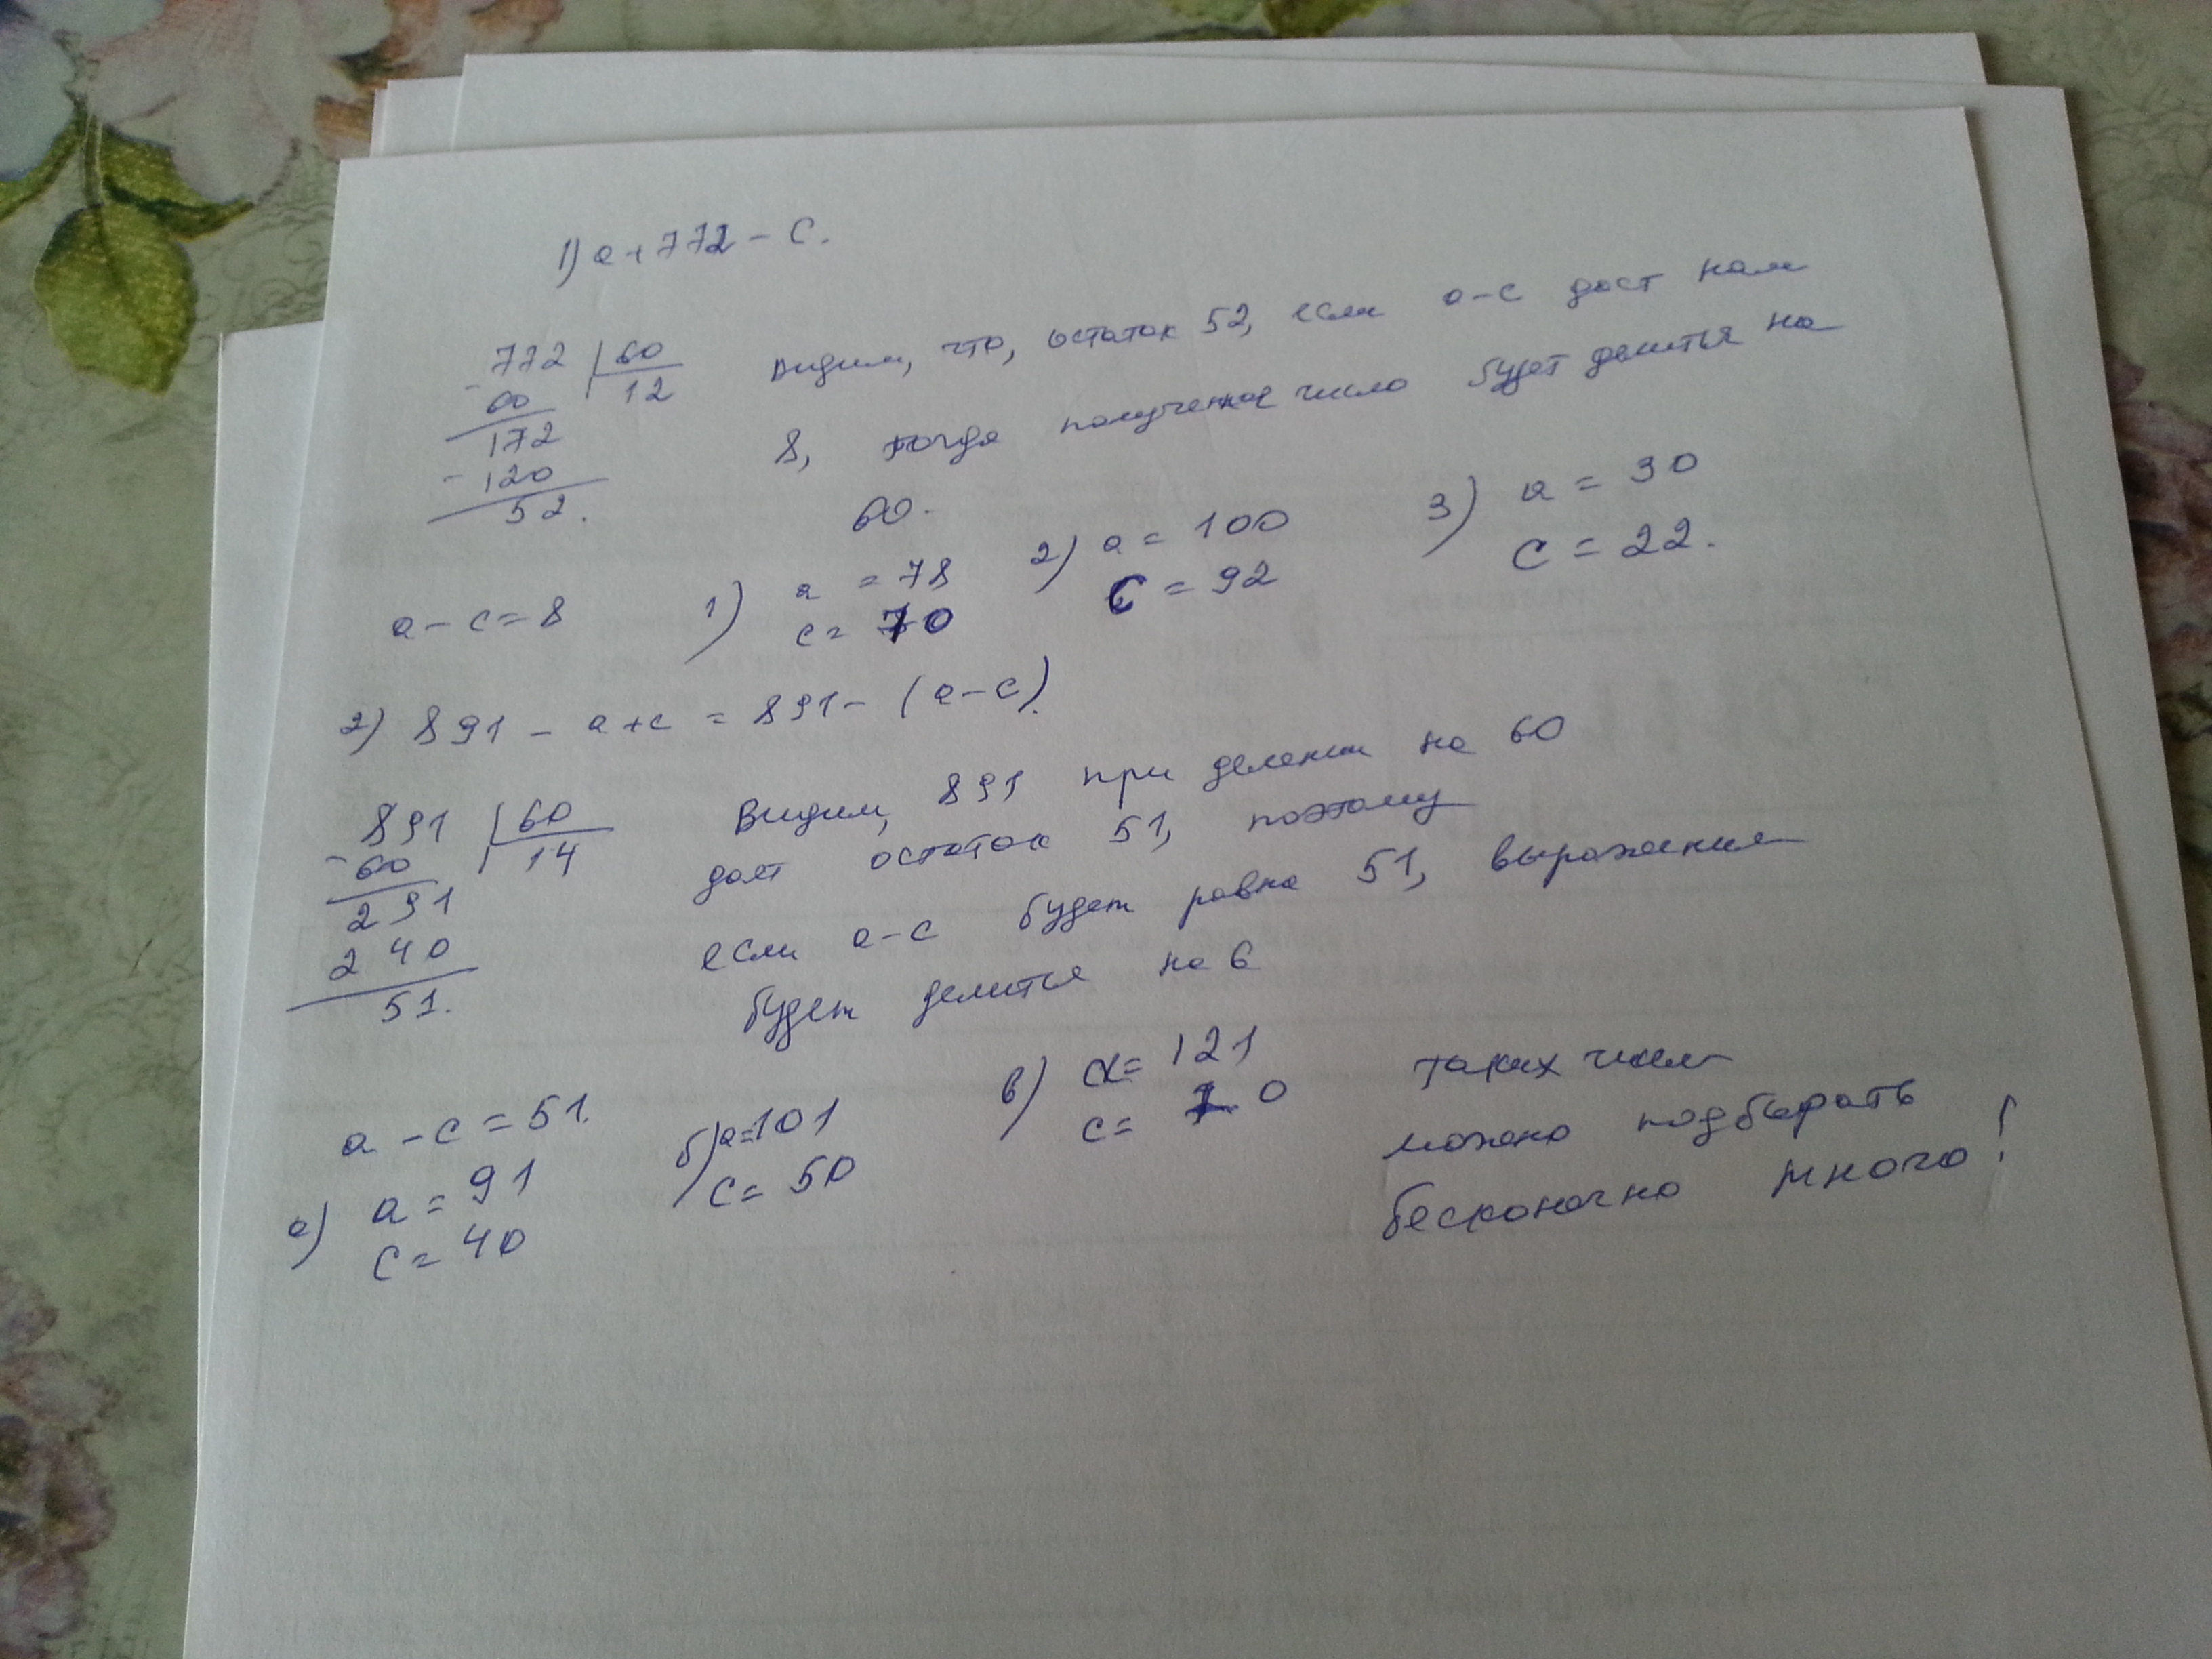 1) a + 772 - c.
772 | 60
- 60 12
172
- 120
52.
видим, что, остаток 52, если a-c даст нам
8, тогда полученное число будет делится на
60.
a - c = 8
1) a = 78
c = 70
2) a = 100
c = 92
3) a = 30
c = 22.
2) 891 - a + c = 891 - (a - c).
891 | 60
- 60 14
291
240
51.
Видим, 891 при делении на 60
дает остаток 51, поэтому
если a-c будет равна 51, выражение
будет делится на 6
a - c = 51.
а) a = 91
c = 40
б) a = 101
c = 50
в) a = 121
c = 70
таких чисел
можно подбирать
бесконечно много!